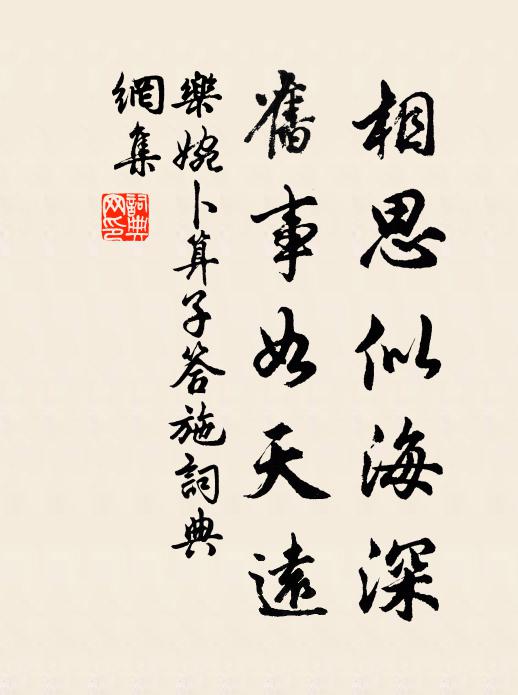 相思似海深
舊事如天遠
樂婉卜算子答施詞典
網集
詞典
网印